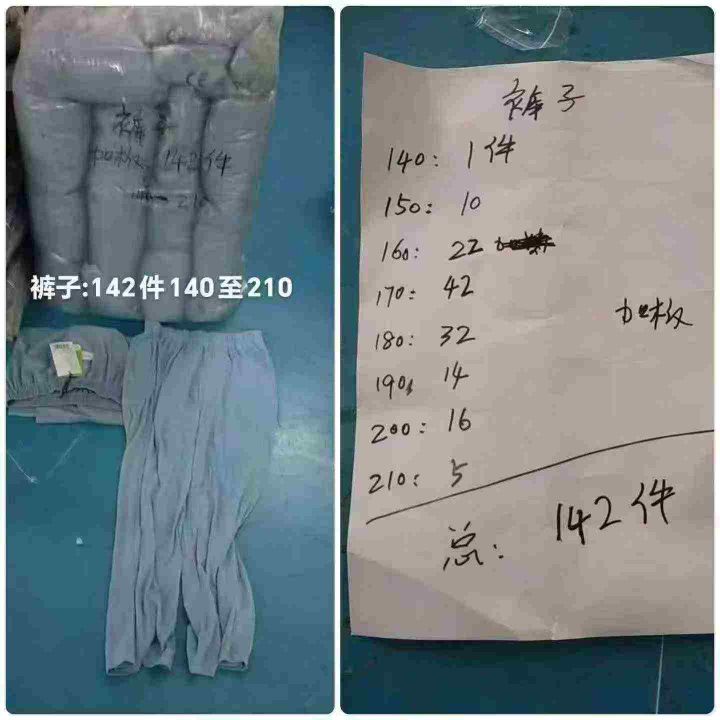 裤子
加枚 142件
210
裤子:142件140至210
裤子
140: 1件
150: 10
160: 22
170: 42
180: 32
190: 14
200: 16
210: 5
加枚
总: 142件